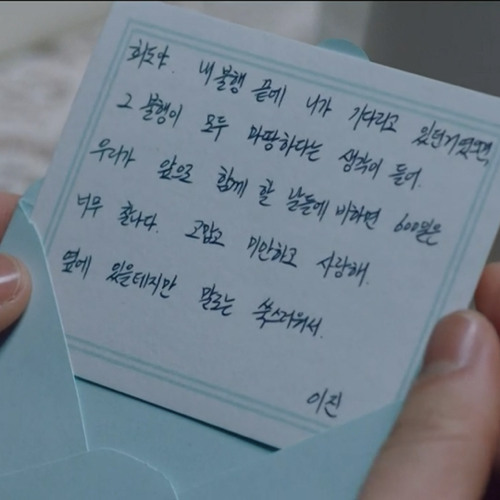 희도야 내 불행 끝에 너가 기다리고 있던거였으면,
그 불행이 모두 마땅하다는 생각이 들어.
우리가 앞으로 함께 할 날들에 비하면 600일은
너무 출나다. 고맙고 미안하고 사랑해.
옆에 있을테지만 말로는 쑥스러워서.
이진